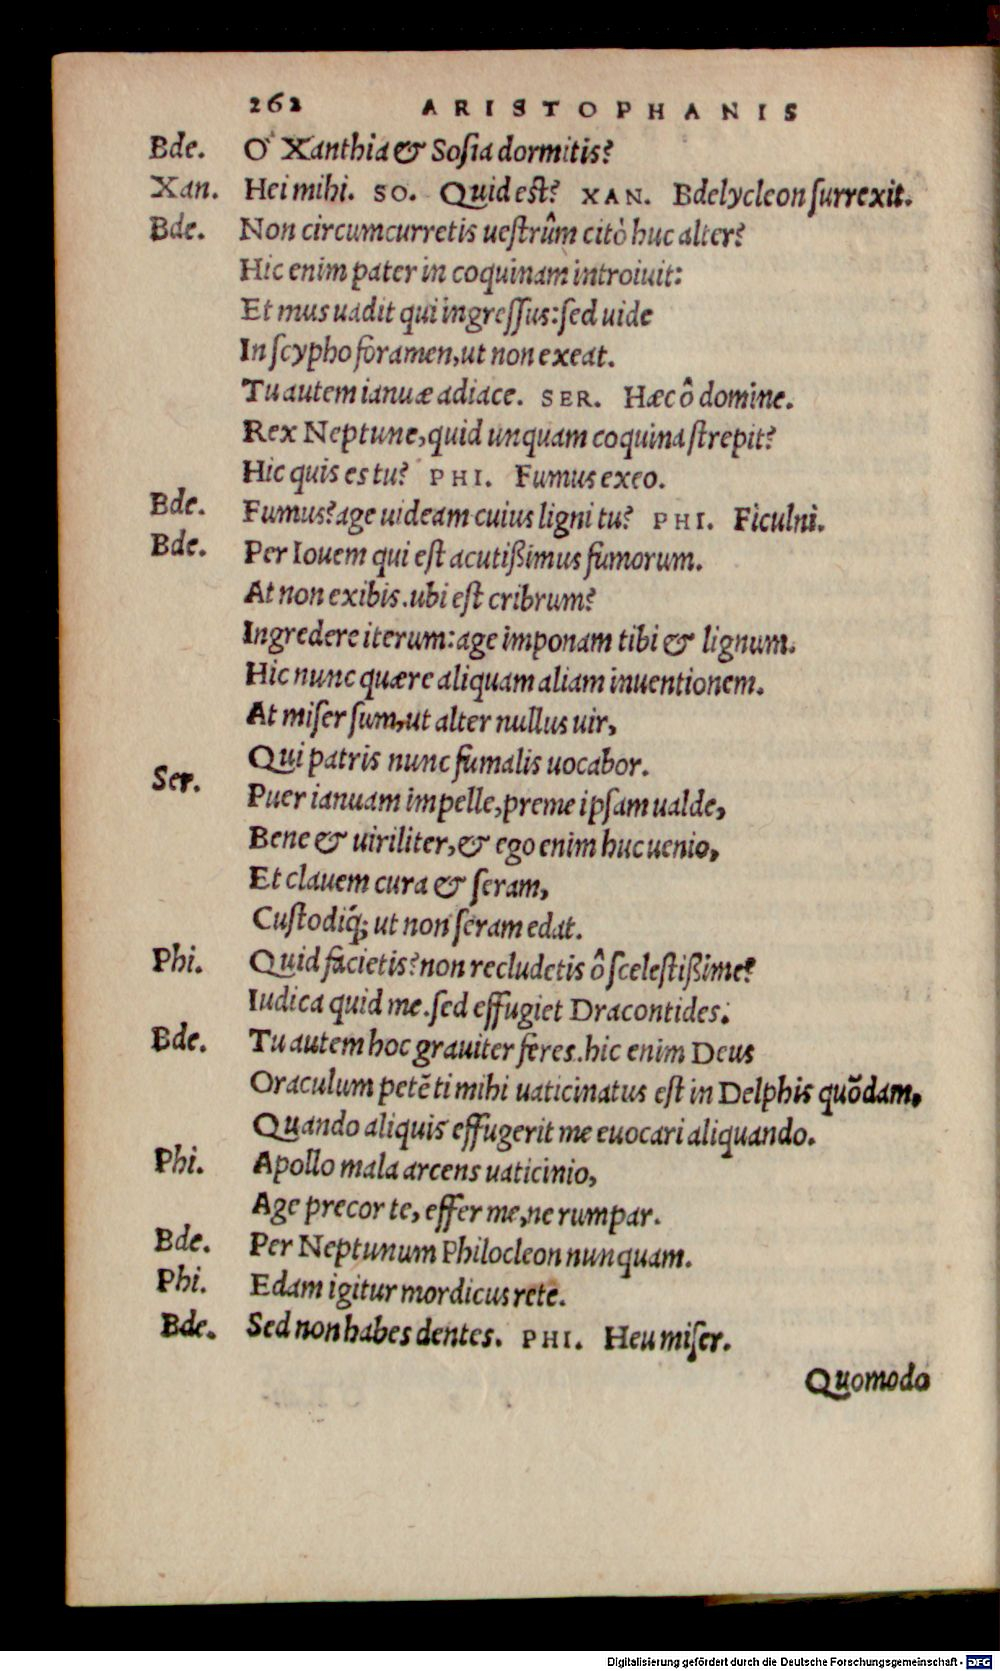 262 ARISTOPHANIS
Bde. O Xanthia & Sosia dormitis?
Xan. Hei mihi. SO. Quid est? XAN. Bdelycleon surrexit.
Bde. Non circumcurretis uestrûm citò huc alter?
Hic enim pater in coquinam introiuit:
Et mus uadit qui ingressus: sed uide
In scypho foramen, ut non exeat.
Tu autem ianuæ adiace. SER. Hæc ô domine.
Rex Neptune, quid unquam coquina strepit?
Hic quis es tu? PHI. Fumus exeo.
Bde. Fumus? age uideam cuius ligni tu? PHI. Ficulni.
Bde. Per Iouem qui est acutißimus fumorum.
At non exibis. ubi est cribrum?
Ingredere iterum: age imponam tibi & lignum.
Hic nunc quære aliquam aliam inuentionem.
At miser sum, ut alter nullus uir,
Qui patris nunc fumalis uocabor.
Ser. Puer ianuam impelle, preme ipsam ualde,
Bene & uiriliter, & ego enim huc uenio,
Et clauem cura & seram,
Custodiq́; ut non seram edat.
Phi. Quid facietis? non recludetis ô scelestißime?
Iudica quid me. sed effugiet Dracontides.
Bde. Tu autem hoc grauiter feres. hic enim Deus
Oraculum petẽti mihi uaticinatus est in Delphis quõdam,
Quando aliquis effugerit me euocari aliquando.
Phi. Apollo mala arcens uaticinio,
Age precor te, effer me, ne rumpar.
Bde. Per Neptunum Philocleon nunquam.
Phi. Edam igitur mordicus rete.
Bde. Sed non habes dentes. PHI. Heu miser.
Quomodo
Digitalisierung gefördert durch die Deutsche Forschungsgemeinschaft - DFG